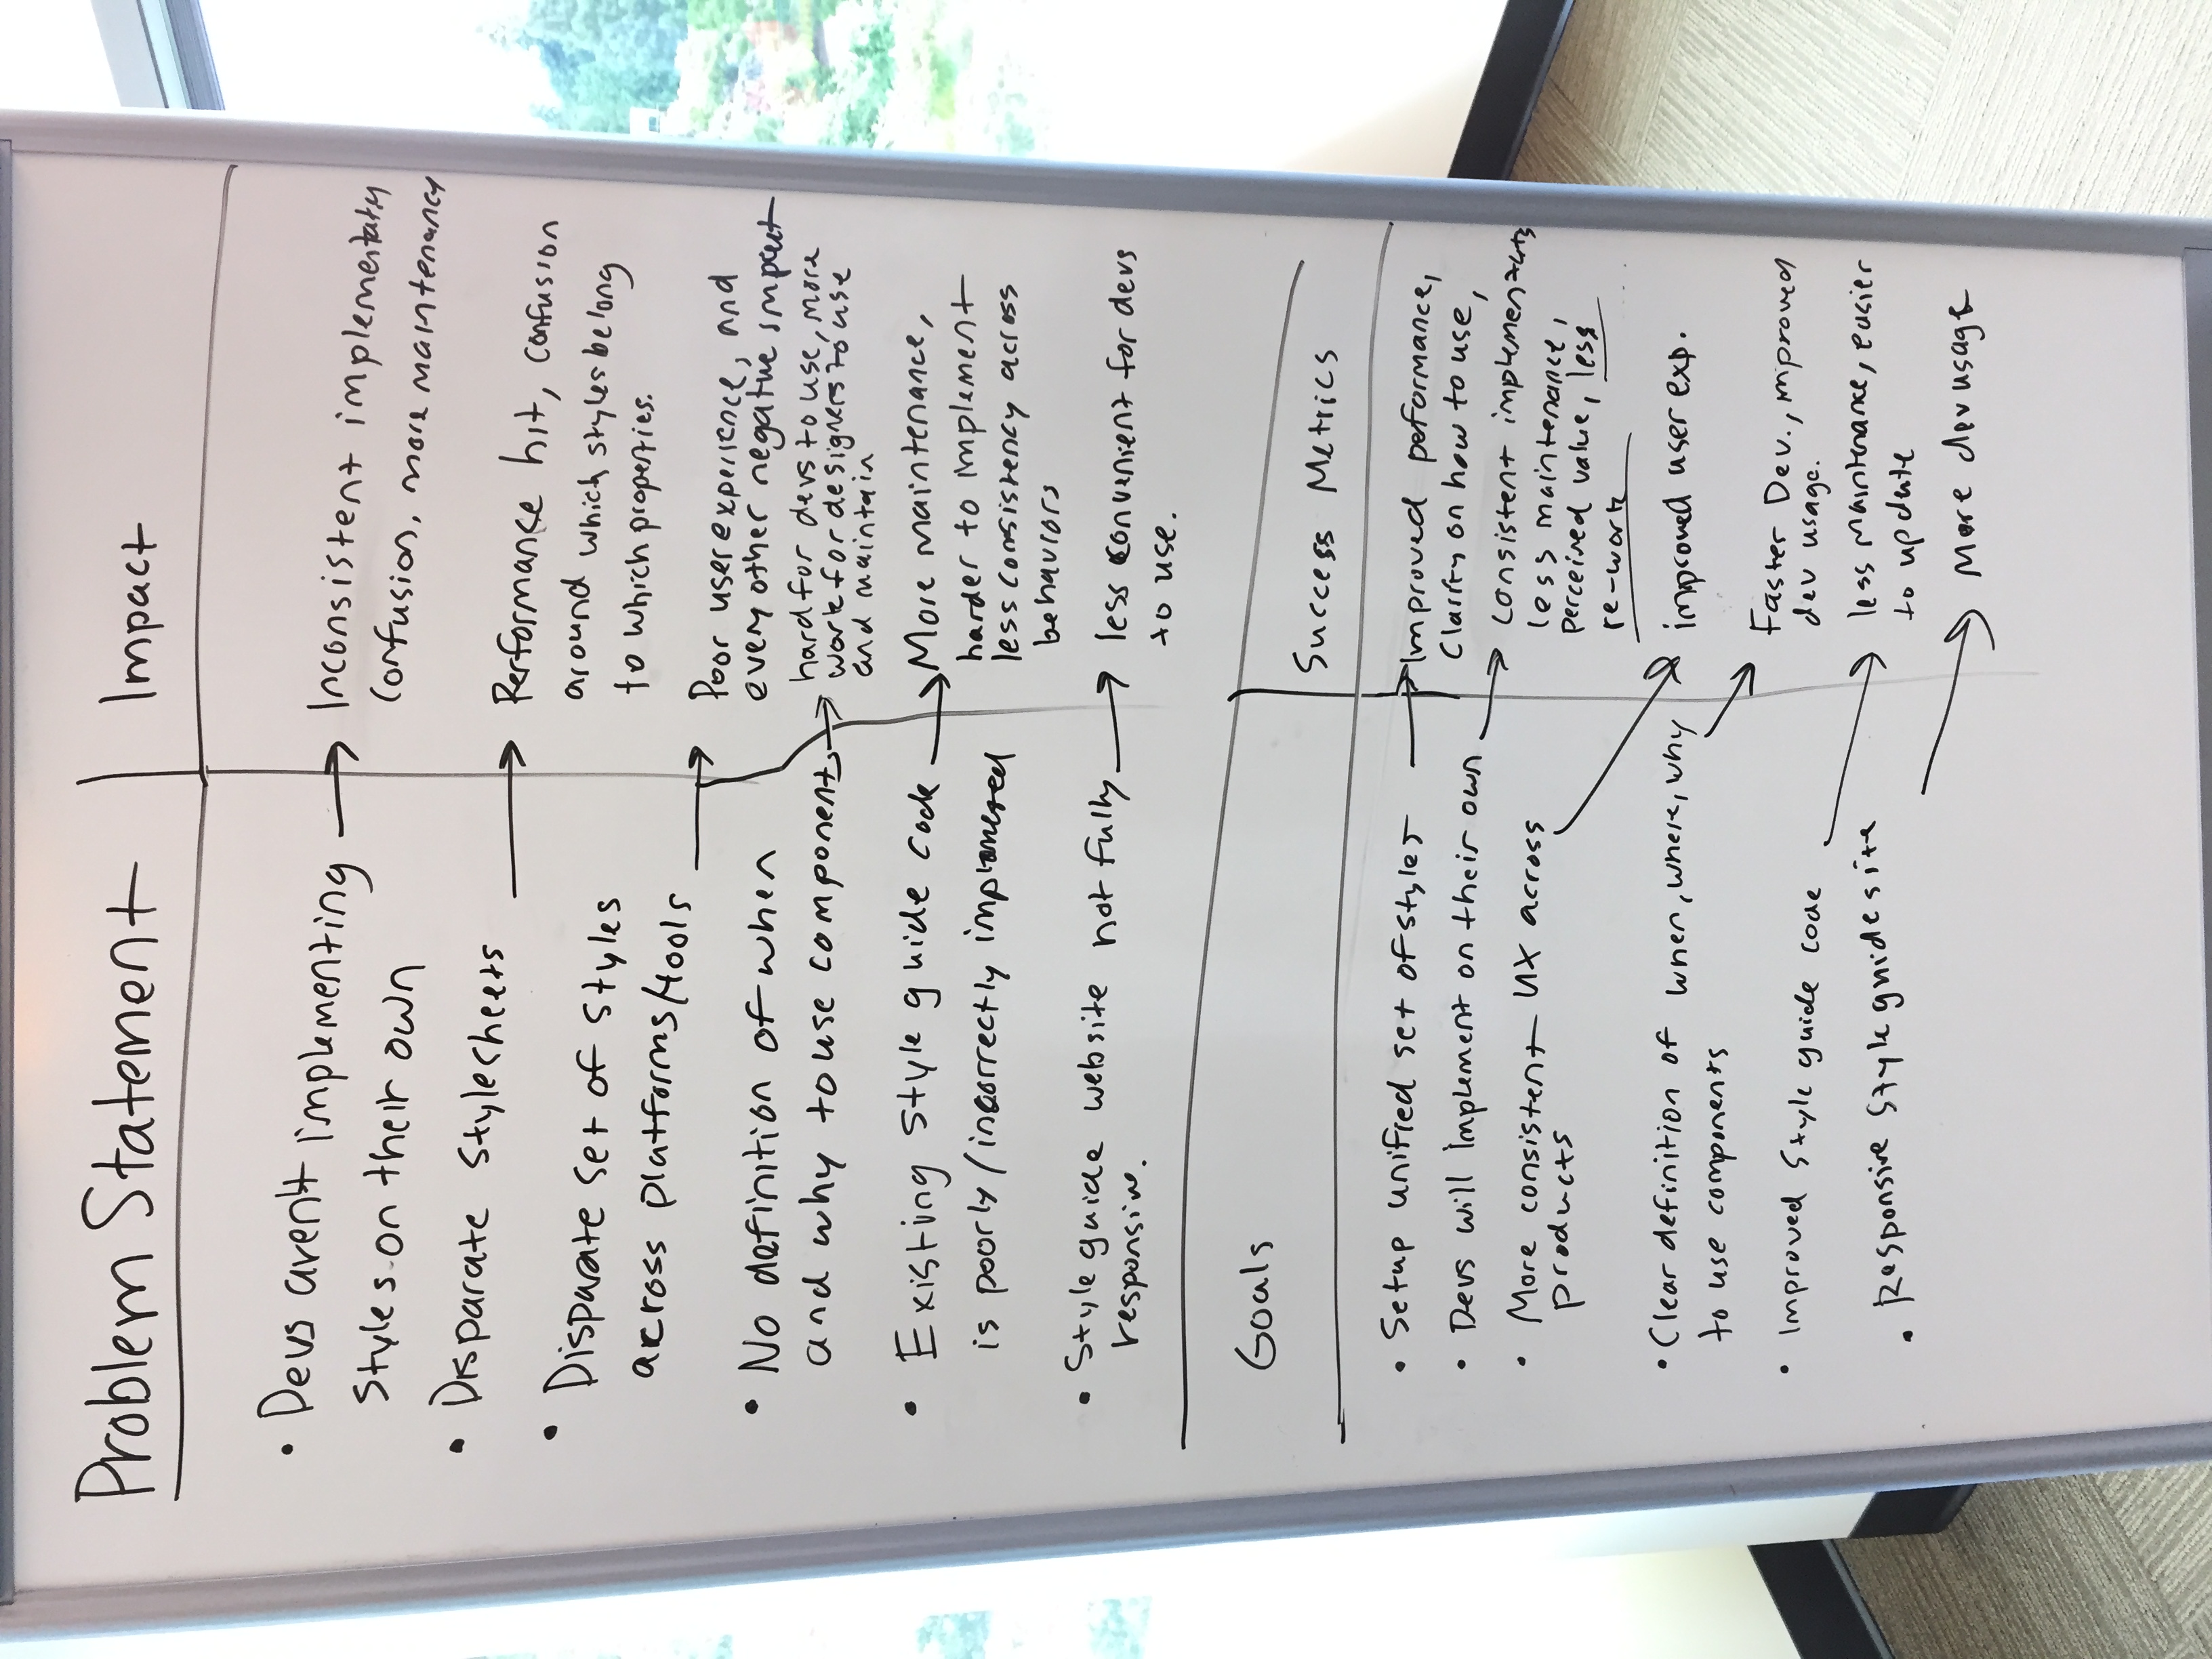 Problem Statement
Impact
• Devs aren't implementing
styles on their own
Inconsistent implementatn
confusion, more maintenancy
• Disparate stylesheets
Performance hit, confusion
around which styles belong
to which properties.
• Disparate set of styles
across platforms/tools
Poor user experience, and
every other negative impact
• No definition of when
and why to use components
hard for devs to use, more
work for designers to use
and maintain
• Existing style guide code
is poorly/incorrectly
More maintenance,
harder to implement
less consistency across
behaviors
• Style guide website not fully
responsive.
less convenient for devs
to use.
Goals
Success Metrics
• Setup unified set of styles
Improved peformance,
Clarity on how to use,
• Devs will implement on their own
consistent
less maintenance,
perceived value, less
re-work
• More consistent UX across
products
improved user exp.
• Clear definition of when, where, why
to use components
Faster Dev., improved
dev usage.
• Improved style guide code
less maintenance, easier
to update
• Responsive style guide site
More dev usage